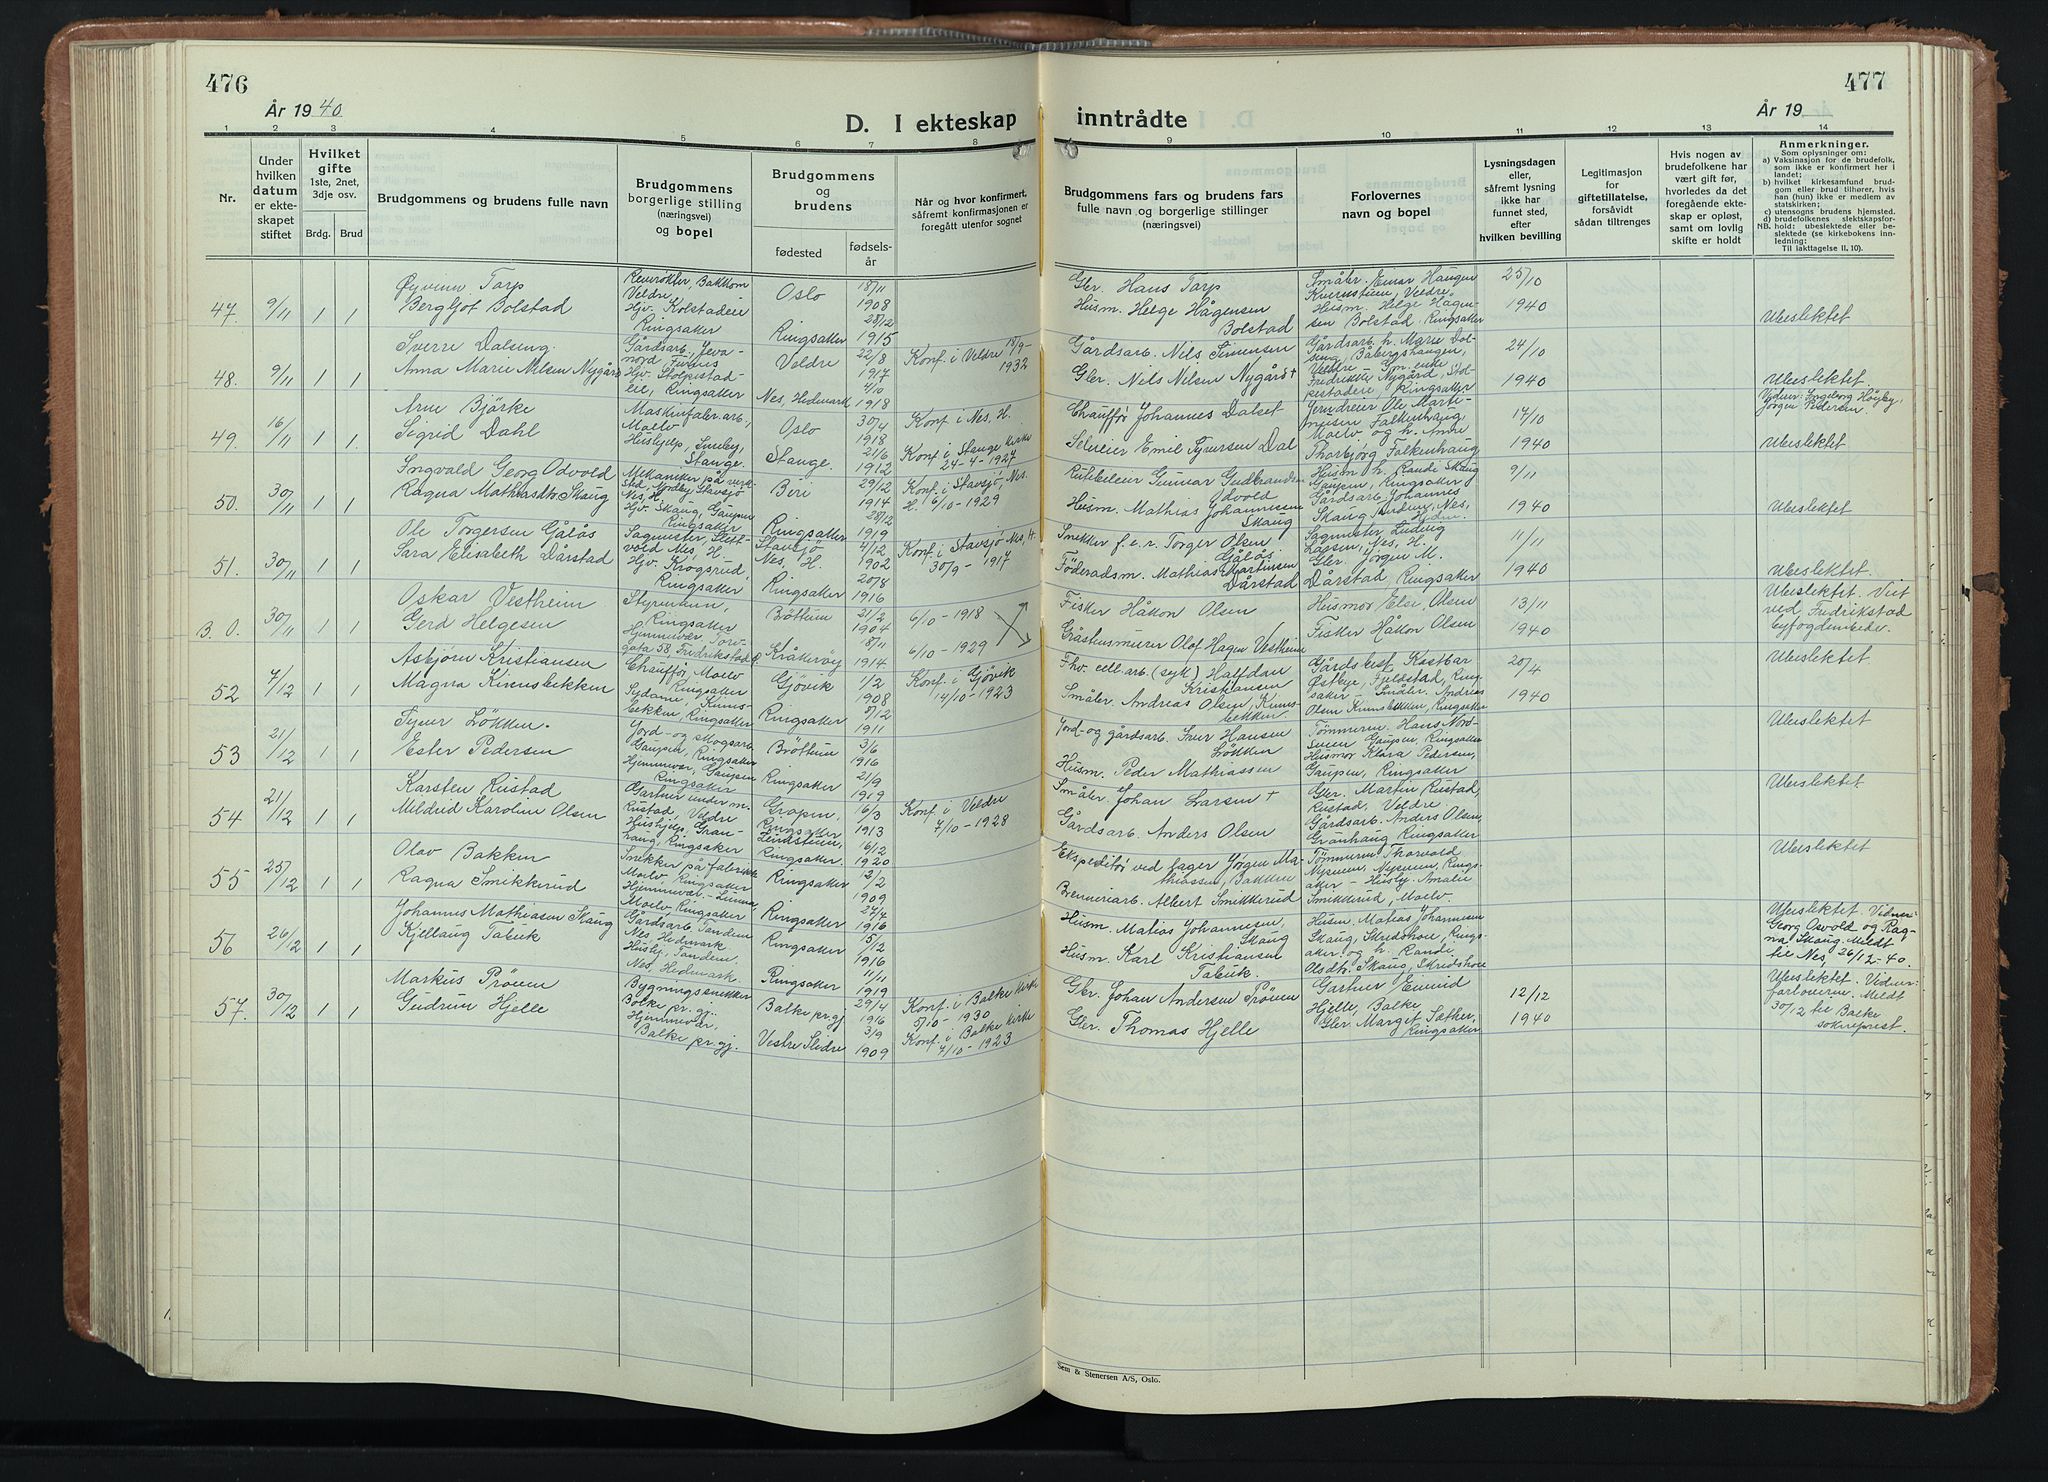 476
År 1940
D. I ekteskap
inntrådte
År 19
477
1
2
3
4
5
6
7
8
9
10
11
12
13
14
Nr.
Under
hvilken
datum
er ekte-
skapet
stiftet
Hvilket
gifte
1ste, 2net,
3dje osv.
Brdg.
Brud
Brudgommens og brudens fulle navn
Brudgommens
borgerlige stilling
(næringsvei)
og bopel
Brudgommens
og
brudens
fødested
fødsels-
år
Når og hvor konfirmert,
såfremt konfirmasjonen er
foregått utenfor sognet
Brudgommens fars og brudens fars
fulle navn og borgerlige stillinger
(næringsvei)
Forlovernes
navn og bopel
Lysningsdagen
eller,
såfremt lysning
ikke har
funnet sted,
efter
hvilken bevilling
Legitimasjon
for
giftetillatelse,
forsåvidt
sådan tiltrenges
Hvis nogen av
brudefolkene har
vært gift før,
hvorledes da det
foregående ekte-
skap er opløst,
samt om lovlig
skifte er holdt
Anmerkninger.
Som oplysninger om:
a) Vaksinasjon for de brudefolk,
som ikke er konfirmert her i
landet;
b) hvilket kirkesamfund brud-
gom eller brud tilhører, hvis
han (hun) ikke er medlem av
statskirken;
c) utensogns brudens hjemsted.
d) brudefolkenes slektskapsfor-
NB. hold: ubeslektede eller be-
slektede (se kirkebokens inn-
ledning:
Til iakttagelse II. 10).
47. 9/11 1 1
Øyvinn Tarp
Bergljot Bolstad
Revrøkter, Bakkom
Veldre
Hjv. Kolstadeie
Ringsaker
Oslo
18/11
1908
Ringsaker
28/12
1915
Gbr. Hans Tarp
Husm. Helge Hågensen
Bolstad
Småbr. Einar Haugen
Kvernstuen, Veldre
Husm. Helge Hågen-
sen Bolstad, Ringsaker
25/10
1940
Ubeslektet
48. 9/11 1 1
Sverre Dalseng
Anna Marie Nilsen Nygård
Gårdsarb., Jeva-
nord, Furnes
Hjv. Stolpestad-
eie, Ringsaker
Veldre
22/8
1917
Nes, Hedmark
4/10
1918
Konf. i Veldre 18/9-
1932
Gårdsarb. Nils Simensen
Gbr. Nils Nilsen Nygård +
Gårdsarb. h. Marie Dal-
seng, Båbergshaugen,
Veldre Gm. enke
Fredrikke Nygård, Stol-
pestadeie, Ringsaker
24/10
1940
Ubeslektet.
49. 16/11 1 1
Arne Bjørke
Sigrid Dahl
Maskinfabr.arb.,
Moelv
Hushjelp, Smeby,
Stange.
Oslo
30/4
1918
Stange.
21/6
1912
Konf. i Nes, H.
Konf. i Stange kirke
24-4-1927
Chauffør Johannes Dalset
Selveier Emil Syversen Dal
Jerndreier Ole Marti-
nusen Falkenhaug
Moelv og h. Anne
Thorbjørg Falkenhaug
17/10
1940
Vidner: Ingeborg Høyby,
Jørgen Pedersen
Ubeslektet
50. 30/11 1 1
Ingvald Georg Odvold
Ragna Mathiasdtr. Skaug
Mekaniker på verk-
sted, Nordby, Stavsjø
Nes, H.
Hjv. Skaug, Gaupen
Ringsaker
Biri
29/12
1914
Ringsaker
28/12
1919
Konf. i Stavsjø, Nes,
H. 6/10-1929
Rutebileier Gunnar Gudbrandsen
Odvold
Husm. Mathias Johannessen
Skaug
Husm h. Rande Skaug
Gaupen, Ringsaker
Gårdsarb. Johannes
9/11
1940
Ubeslektet
51. 30/11 1 1
Ole Torgersen Gålås
Sara Elisabeth Dårstad
Sagmester,
Nes, H.
Hjv. Krogsrud,
Ringsaker
Stavsjø
Nes, H.
4/12
1902
Ringsaker
20/8
1916
Konf. i Stavsjø Nes, H.
30/9-1917
Snekker f.e.r. Torger Olsen
Gålås
Föderadsm. Mathias Martinsen
Dårstad
Sagmester Ludvig
Larsen, Nes, H.
Gbr. Jörgen M.
Dårstad Ringsaker
11/11
1940
Ubeslektet.
B. O. 30/11 1 1
Oskar Vestheim
Gerd Helgesen
Styrmann,
Ringsaker
Hjemmevær. Torv-
gata 58, Fredrikstad
Brøttum
21/2
1904
Kråkerøy
18/11
1914
6/10-1918
6/10-1929
Fisker Håkon Olsen
Gråstensmurer Olof Hagen Vestheim
Husmor Else Olsen
Fisker Håkon Olsen
13/11
1940
Ubeslektet. Viet
ved Fredrikstad
byfogdembede.
52 7/12 1 1
Asbjørn Kristiansen
Magna Kinnsbekken
Chauffør, Moelv
Ringsaker
Sydame, Kinns-
bekken, Ringsaker
Gjøvik
1/2
1908
Ringsaker
5/12
1911
Konf. i Gjøvik
14/10-1923
Fhv. cell. arb. (syk) Halfdan
Kristiansen
Småbr. Andreas Olsen, Kinns-
bekken
Gårdsbest. Kostbar
Østbye, Fjeldstad, Ring-
saker - Småbr. Andreas
Olsen Kinnsbekken, Ringsaker
20/4
1940
Ubeslektet
53 21/12 1 1
Syver Løkken.
Ester Pedersen
Jord- og skogsarb.
Gaupen, Ringsaker
Hjemmevær. Gaupen
Ringsaker
Brøttum
3/6
1916
Ringsaker
21/9
1919
Jord- og gårdsarb. Iver Hansen
Løkken
Husm. Peder Mathiassen
Tömmerm. Hans Nord-
Gaupen, Ringsaker
Husmor Klara Pedersen,
Gaupen, Ringsaker
Ubeslektet
54 21/12 1 1
Karsten Rustad
Mildrid Karoline Olsen
Gartner under m.
Rustad, Veldre
Hushjelp, Gran-
haug, Ringsaker
16/3
1913
Ringsaker.
16/12
1920
Konf. i Veldre
7/10-1928
Småbr. Johan Larsen +
Gårdsarb. Anders Olsen
Gbr. Martin Rustad,
Rustad, Veldre
Gårdsarb. Anders Olsen,
Granhaug Ringsaker
Ubeslektet.
55 25/12 1 1
Olav Bakken
Ragna Smikkerud
Snekker på fabrikk
Moelv Ringsaker
Hjemmevær.
Moelv, Ringsaker
Ringsaker
2/2
1909
Ringsaker
27/4
1916
Ekspeditör ved lager Jørgen Ma-
thiassen, Bakken
Brenneriarb. Albert Smikkerud
Tømmerm. Thorvald
Nymoen, Nymoen, Rings-
aker - Husby. Amalie
Smikkerud, Moelv.
Ubeslektet
56 26/12 1 1
Johannes Mathiasen Skaug
Kjellaug Tabuk
Gårdsarb. Tandem
Nes, Hedmark
Hushj., Tandem.
Nes, Hedmark.
Ringsaker
15/2
1916
Ringsaker
11/11
1919
Husm. Matias Johannesen,
Skaug
Husm. Karl Kristiansen
Tabuk.
Husm. Matias Johannesen
Skaug, Skredshoe, Rings-
aker. og h. Randi
Olsdtr. Skaug, Skredshoe
Ubeslektet. Vidner:
Georg Osvold og Rag-
na Skaug. Meldt
til Nes, 26/12-40.
57. 30/12 1 1
Markus Prøven
Gudrun Hjelle
Bygningssnekker
Balke pr. gj.
Hjemmevær,
Balke pr. gj.
Balke pr. gj
29/4
1916
Vestre Slidre
3/9
1909
Konf. i Balke kirke
5/10-1930
Konf. i Balke kirke
7/10-1923
Gbr. Johan Andersen Prøven
Gbr. Thomas Hjelle
Gartner Emmid
Hjelle, Balke
Gbr. Marget Sæther,
Ringsaker
12/12
1940
Ubeslektet. Vidner:
forloverne. Meldt
30/12 til Balke
sokneprest.
Sem & Stenersen A/S, Oslo.